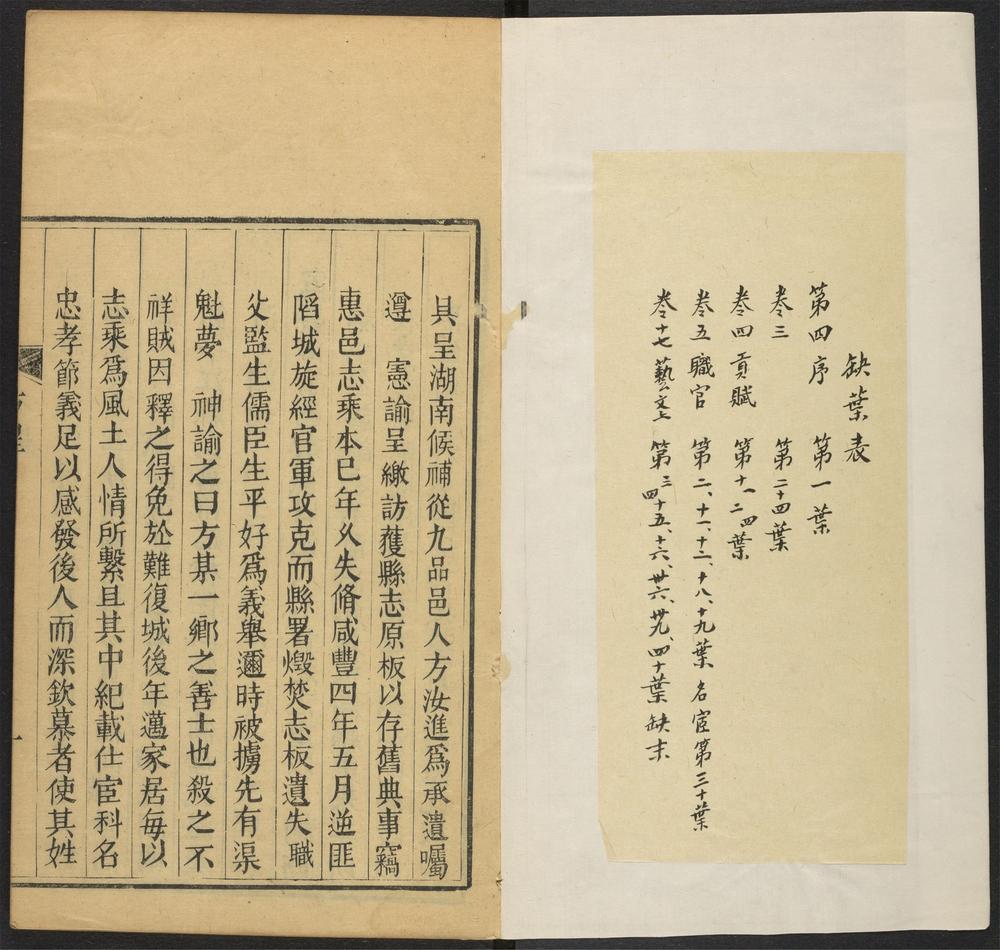 缺葉表
第四序 第一葉
卷三 第二十四葉
卷四貢賦 第十一、二四葉
卷五職官 第二、十一、十二、十八、十九葉 名宦第三十葉
卷十七藝文上 第三四十五、十六、卅六、卅九、四十葉缺末
具呈湖南候補從九品邑人方汝進爲承遺囑
遵 憲諭呈繳訪獲縣志原板以存舊典事竊
惠邑志乘本巳年久失脩咸豐四年五月逆匪
陷城旋經官軍攻克而縣署燬焚志板遺失職
父監生儒臣生平好爲義舉邇時被擄先有渠
魁夢 神諭之曰方某一鄉之善士也殺之不
祥賊因釋之得免於難復城後年邁家居每以
志乘爲風土人情所繫且其中紀載仕宦科名
忠孝節義足以感發後人而深欽慕者使其姓
一